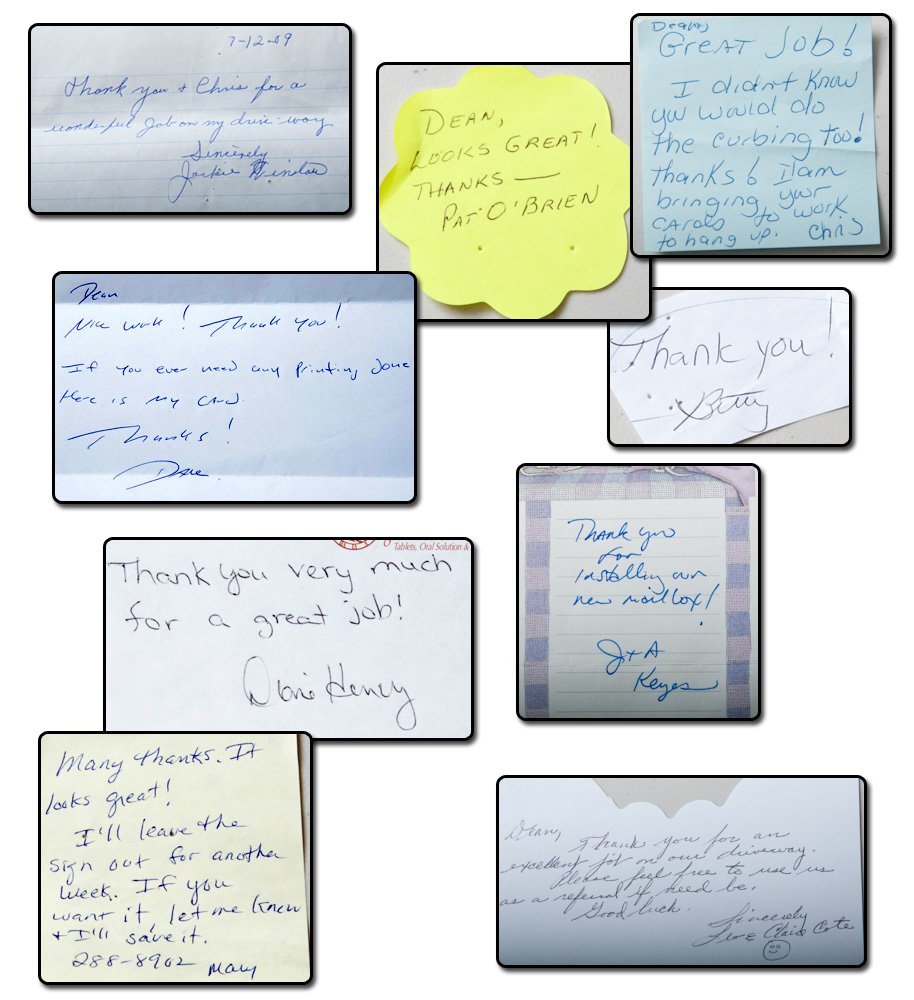 7-12-09
Thank you + Chris for a
wonderful job on my drive-way
Sincerely
Jackie Winslow
DEAN,
LOOKS GREAT!
THANKS —
PAT O'BRIEN
Dean,
GREAT Job!
I didn't know
you would do
the curbing too!
thanks! I am
bringing your
cards to work
to hang up. Chris
Dean
Nice work! Thank you!
If you ever need any printing done
Here is my card.
Thanks!
Dave
Thank you!
Betty
Tablets, Oral Solution &
Thank you very much
for a great job!
Doris Henry
Thank you
for
installing our
new mailbox!
J + A
Keyes
Many thanks. It
looks great!
I'll leave the
sign out for another
week. If you
want it, let me know
+ I'll save it.
288-8902 Mary
Dean,
Thank you for an
excellent job on our driveway.
Please feel free to use us
as a referral if need be.
Good luck.
Sincerely
Claire Cote